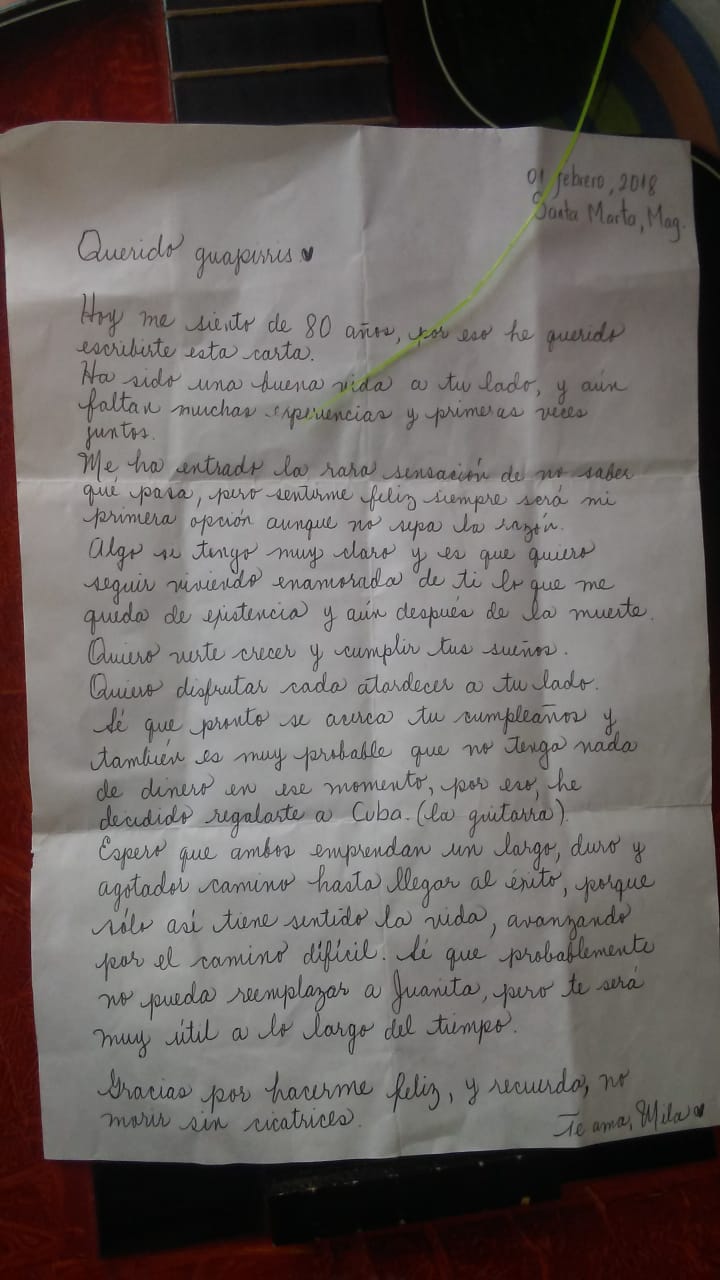 01 febrero, 2018
Santa Marta, Mag.
Querido guapirris ♥
Hoy me siento de 80 años, por eso he querido
escribirte esta carta.
Ha sido una buena vida a tu lado, y aún
faltan muchas experiencias y primeras veces
juntos.
Me ha entrado la rara sensación de no saber
qué pasa, pero sentirme feliz siempre será mi
primera opción aunque no sepa la razón.
Algo si tengo muy claro y es que quiero
seguir viviendo enamorada de ti lo que me
queda de existencia y aún después de la muerte.
Quiero verte crecer y cumplir tus sueños.
Quiero disfrutar cada atardecer a tu lado.
Sé que pronto se acerca tu cumpleaños y
también es muy probable que no tenga nada
de dinero en ese momento, por eso, he
decidido regalarte a Cuba. (la guitarra).
Espero que ambos emprendan un largo, duro y
agotador camino hasta llegar al éxito, porque
sólo así tiene sentido la vida, avanzando
por el camino difícil. Sé que probablemente
no pueda reemplazar a Juanita, pero te será
muy útil a lo largo del tiempo.
Gracias por hacerme feliz, y recuerda, no
morir sin cicatrices.
Te ama, Mila ♥